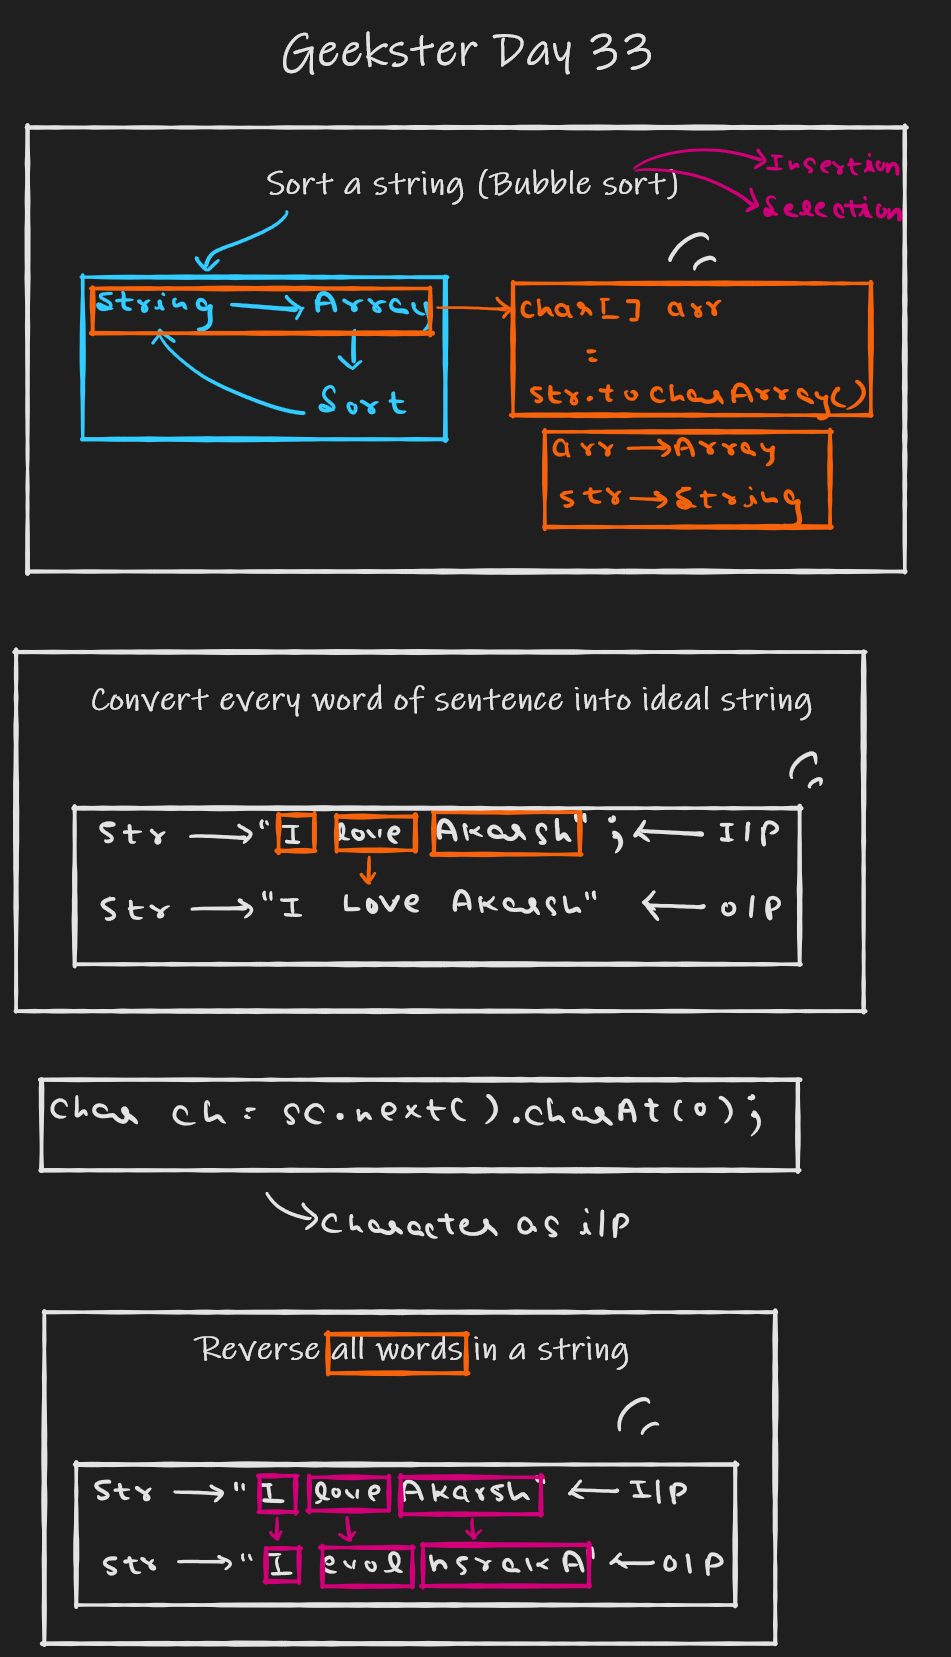 Geekster Day 33
Sort a string (Bubble sort)
Insertion
Selection
String → Array
Sort
char[] arr
=
str.toCharArray()
arr → Array
str → String
Convert every word of sentence into ideal string
Str → "I love Akarsh" ; ← I/P
Str → "I Love Akarsh" ← O/P
Char ch = sc.next().charAt(0);
Character as i/p
Reverse all words in a string
Str → "I love Akarsh" ← I/P
Str → "I evol hsrakA" ← O/P